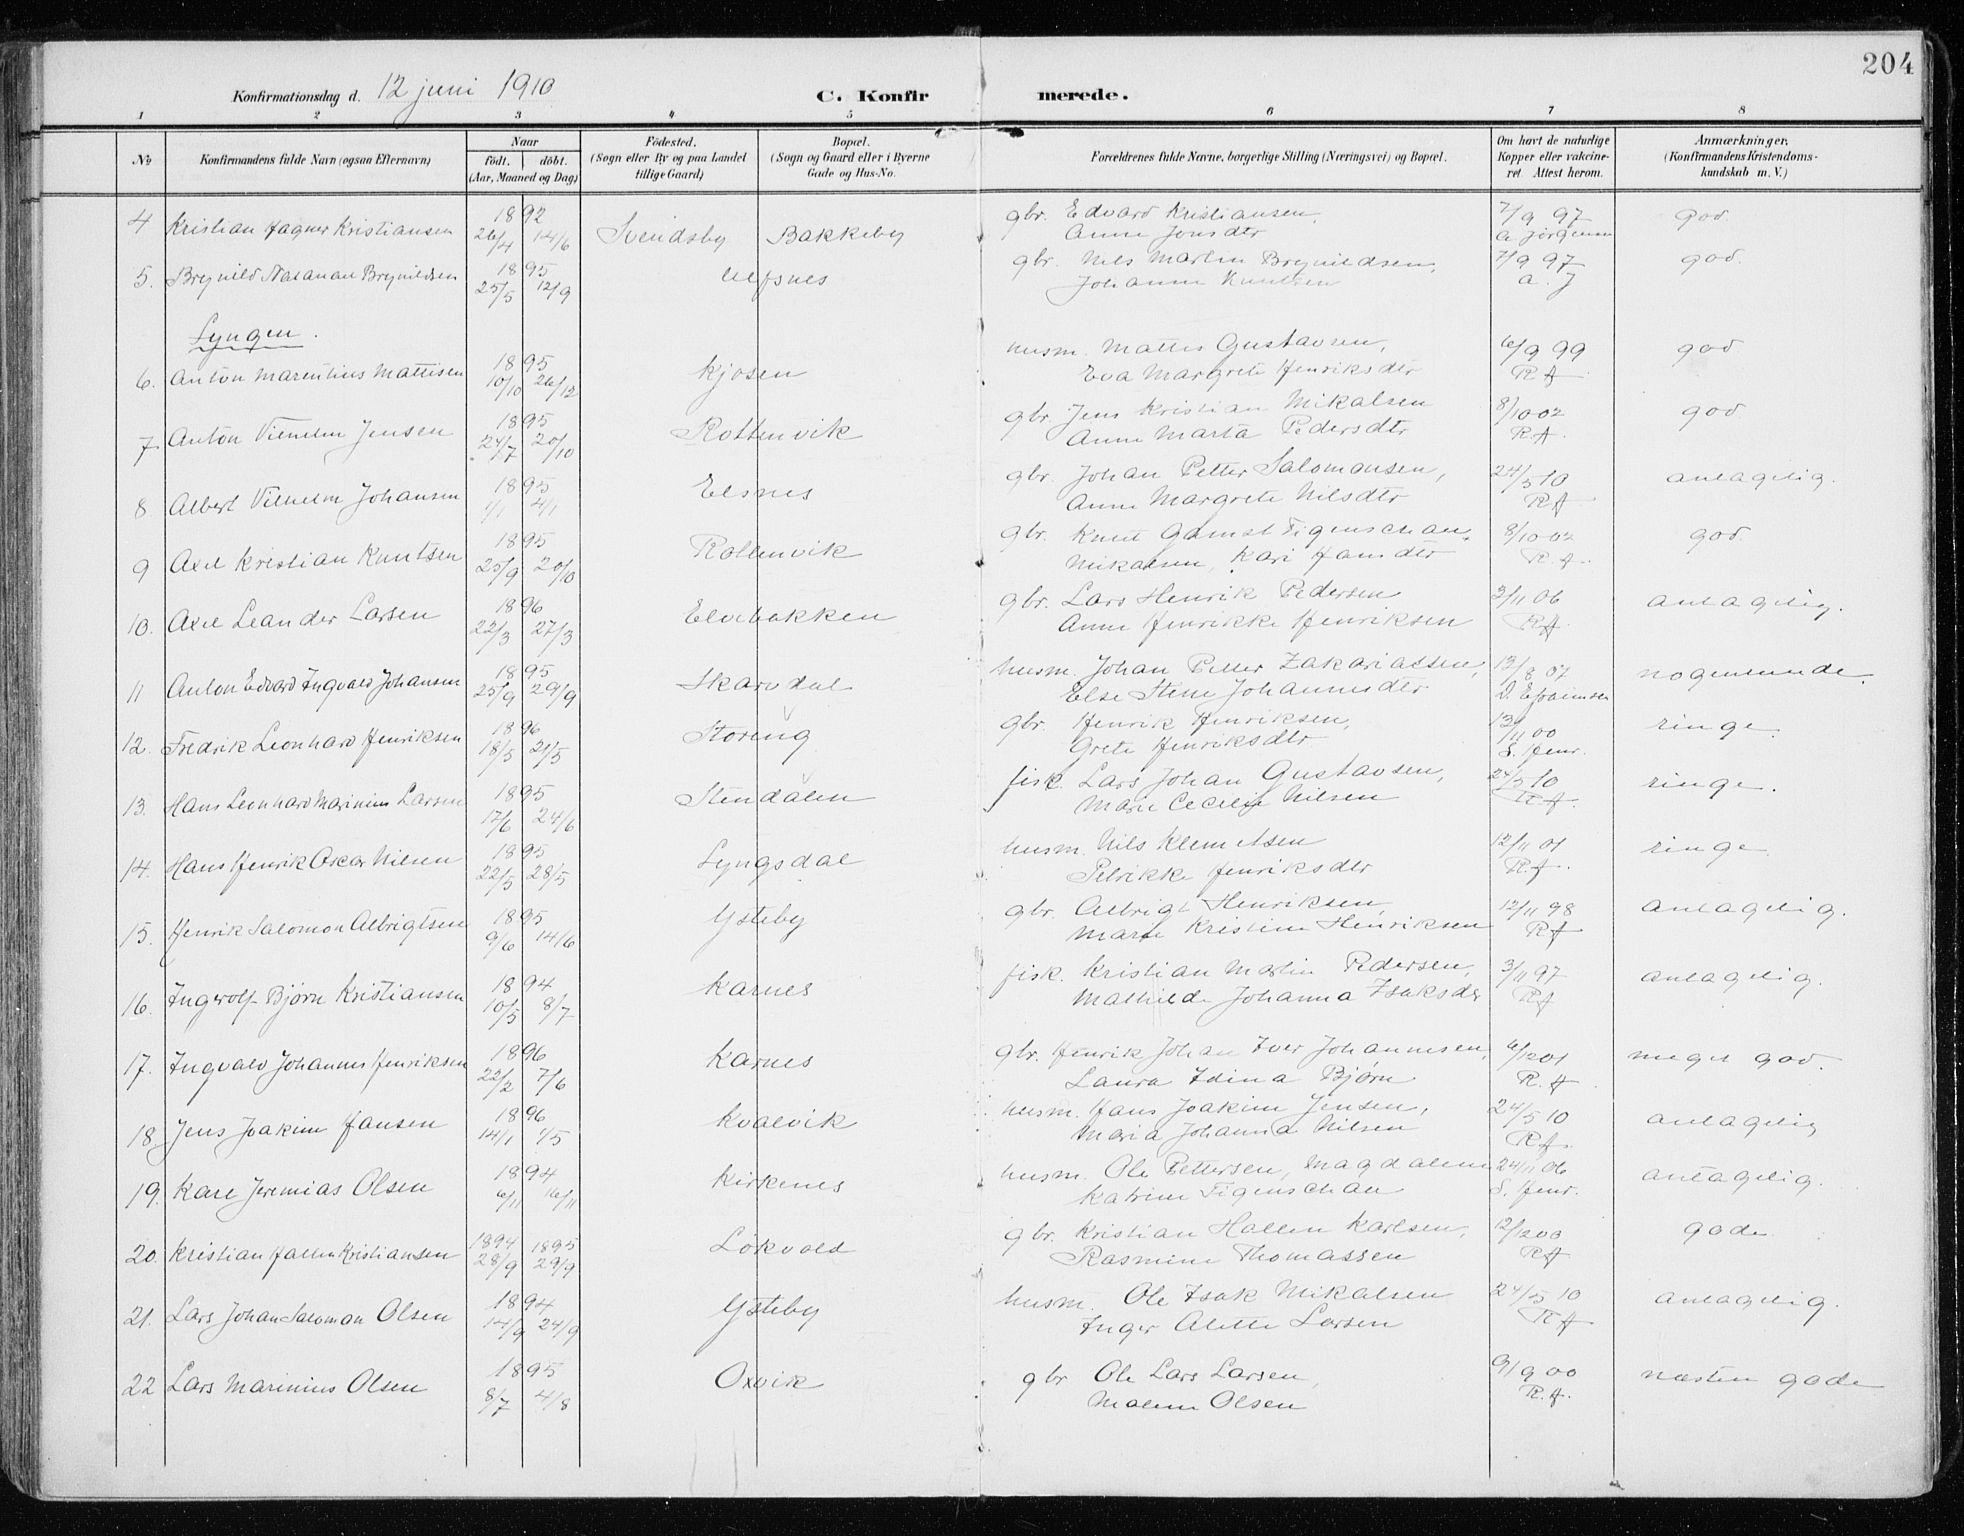 204
Konfirmationsdag d. 12 juni 1910
C. Konfirmerede.
1 2 3 4 5 6 7 8
No
Konfirmandens fulde Navn (ogsaa Efternavn)
Naar
født. døbt.
(Aar, Maaned og Dag)
Fødested.
(Sogn eller By og paa Landet
tillige Gaard)
Bopæl.
(Sogn og Gaard eller i Byerne
Gade og Hus-No.
Forældrenes fulde Navne, borgerlige Stilling (Næringsvei) og Bopæl.
Om havt de naturlige
Kopper eller vakcine-
ret. Attest herom.
Anmærkninger.
(Konfirmandens Kristendoms-
kundskab m. V.)
4 Kristian Hagner Kristiansen 1892 26/4 14/6 Svendsby Bakkeby gbr. Edvard Kristiansen, 7/9 97 god
Anne Jonsdtr A Jörgensen
5. Brynild Natanael Brynildsen 1895 25/5 12/9 Ulfsnes gbr. Nils Martin Brynildsen, 7/9 97 god.
Johanne Knutsen A. J
Lyngen.
6. Anton Marentius Mattisen 1895 10/10 26/12 Kjosen husm. Mattis Gustavsen, 6/9 99 god
Eva Margrete Henriksdtr R H
7 Anton Vilhelm Jensen 1895 24/7 20/10 Rottenvik gbr. Jens Kristian Mikalsen 8/10 02 god
Anne Marta Pedersdtr R. H.
8 Albert Vilhelm Johansen 1895 1/1 4/1 Elsnes gbr. Johan Petter Salomonsen, 24/5 10 antagelig.
Anne Margrete Nilsdtr R H
9 Axel Kristian Knutsen 1895 25/9 20/10 Rottenvik gbr. Knut Gamst Figenschau 8/10 02 god.
Mikalsen, Kari Hansdtr R H.
10. Axel Leander Larsen 1896 22/3 27/3 Elvebakken gbr. Lars Henrik Pedersen 3/11 06 antagelig.
Anne Henrikke Henriksen R H.
11 Anton Edvard Ingvald Johansen 1895 25/9 29/9 Skarvdal husm. Johan Petter Zakariassen, 13/8 07 nogenlunde.
Else Stine Johannesdtr D. Efraimsen
12. Fredrik Leonhard Henriksen 1896 18/5 21/5 Storeng gbr. Henrik Henriksen, 13/11 00 ringe.
Grete Henriksdtr S. Henr.
13. Hans Leonhard Marinius Larsen 1895 17/6 24/6 Stendalen fisk. Lars Johan Gustavsen, 24/5 10 ringe.
Marie Cecilie Nilsen R H.
14. Hans Henrik Oscar Nilsen 1895 22/5 28/5 Lyngsdal husm. Nils Klemetsen 12/11 01 ringe
Petrikke Henriksdtr R. H.
15. Henrik Salomon Albrigtsen 1895 9/6 14/6 Ysteby gbr. Albrigt Henriksen, 12/11 98 antagelig.
Marie Kristine Henriksen R H
16. Ingwolf Bjørn Kristiansen 1894 10/5 8/7 Karnes fisk. Kristian Martin Pedersen, 3/11 97 antagelig.
Mathilde Johanna Isaksdtr R H
17. Ingvald Johannes Henriksen 1896 22/2 7/6 Karnes gbr. Henrik Johan Iver Johannesen, 6/12 01 meget god.
Laura Idina Bjørn R. H
18. Jens Joakim Hansen 1896 14/1 1/5 Kvalvik husm. Hans Joakim Jensen, 24/5 10 antagelig
Maria Johanna Nilsen R H.
19. Kare Jeremias Olsen 1894 6/11 16/11 Kirkenes husm. Ole Pettersen, Magdalene 24/11 06 antagelig.
Katrine Figenschau S. Henr.
20. Kristian Hallen Kristiansen 1894 28/9 1895 29/9 Lökvold gbr. Kristian Hallen Karlsen, 12/12 00 gode
Rasmine Thomassen R H
21. Lars Johan Salomon Olsen 1894 14/9 24/9 Ysteby husm. Ole Isak Mikalsen 24/5 10 antagelig.
Inger Alette Larsen R H
22 Lars Marinius Olsen 1895 8/7 4/8 Oxvik gbr Ole Lars Larsen, 9/9 00 næsten gode
Malene Olsen R. H.